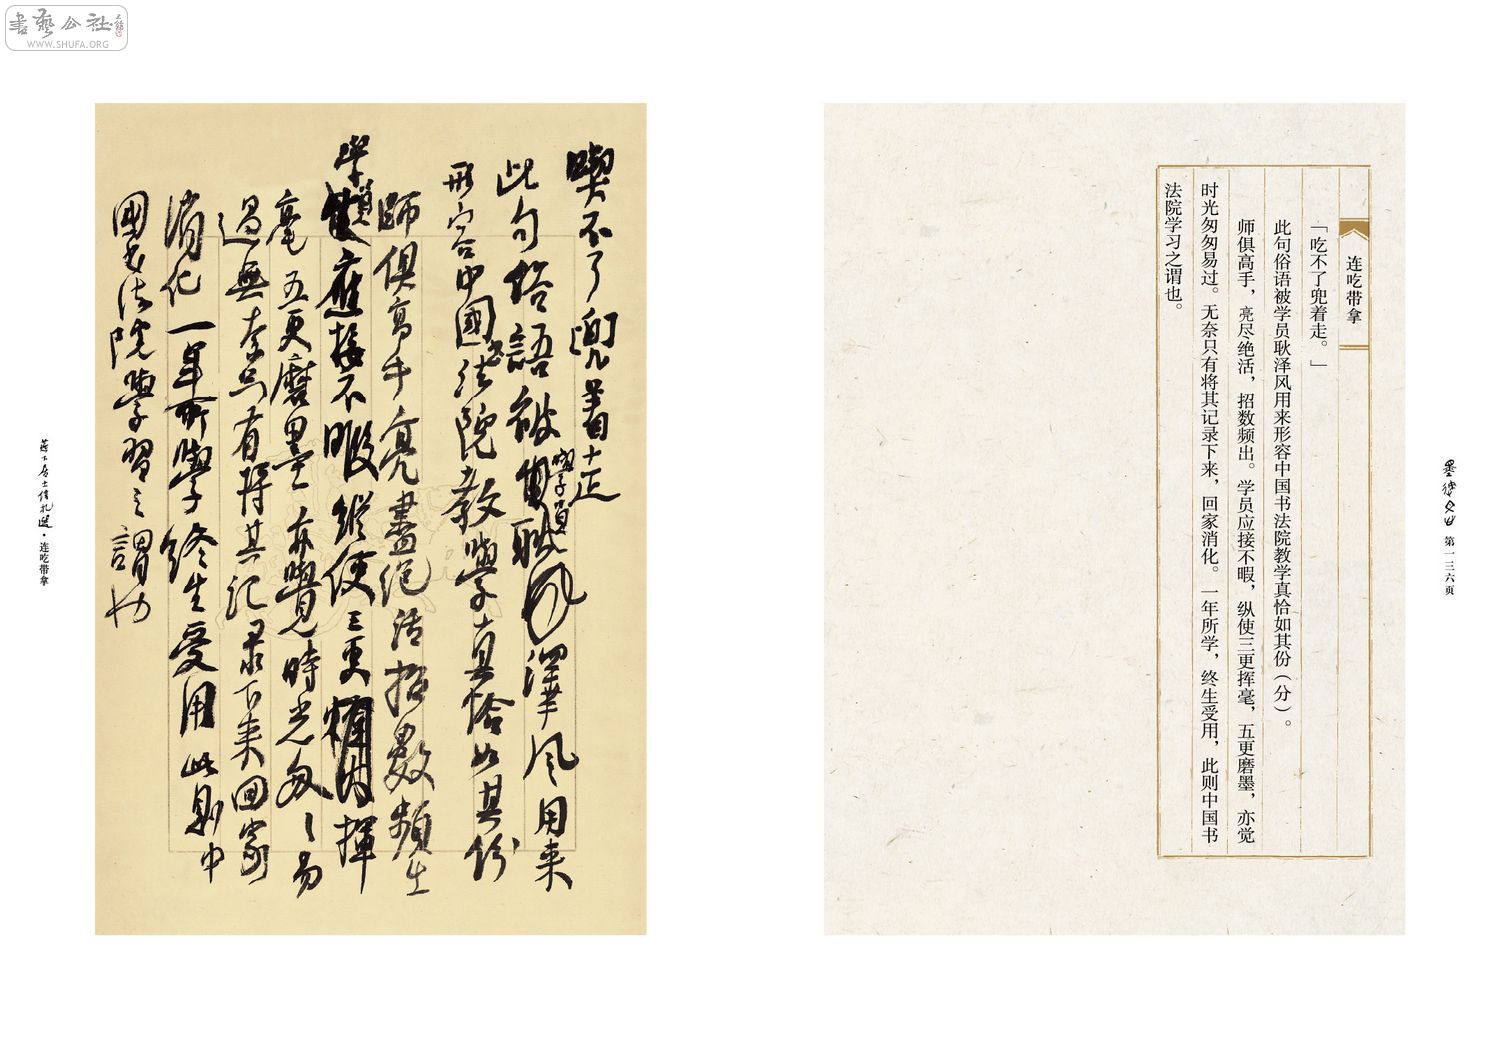 書藝公社
WWW.SHUFA.ORG
连吃带拿
「吃不了兜着走。」
此句俗语被学员耿泽风用来形容中国书法院教学真恰如其份（分）。
师俱高手，亮尽绝活，招数频出。学员应接不暇，纵使三更挥毫，五更磨墨，亦觉
时光匆匆易过。无奈只有将其记录下来，回家消化。一年所学，终生受用，此则中国书
法院学习之谓也。
第一三六页
喫不了兜着走
此句俗語被學員耿澤风用来
形容中國书法院教學真恰如其份
師俱高手亮盡绝活招數頻出
學員應接不暇縱使三更揮
毫五更磨墨亦覺時光匆匆易
過無奈只有将其记录下来回家
消化一年所學终生受用此则中
國书法院學習之謂也
·连吃带拿